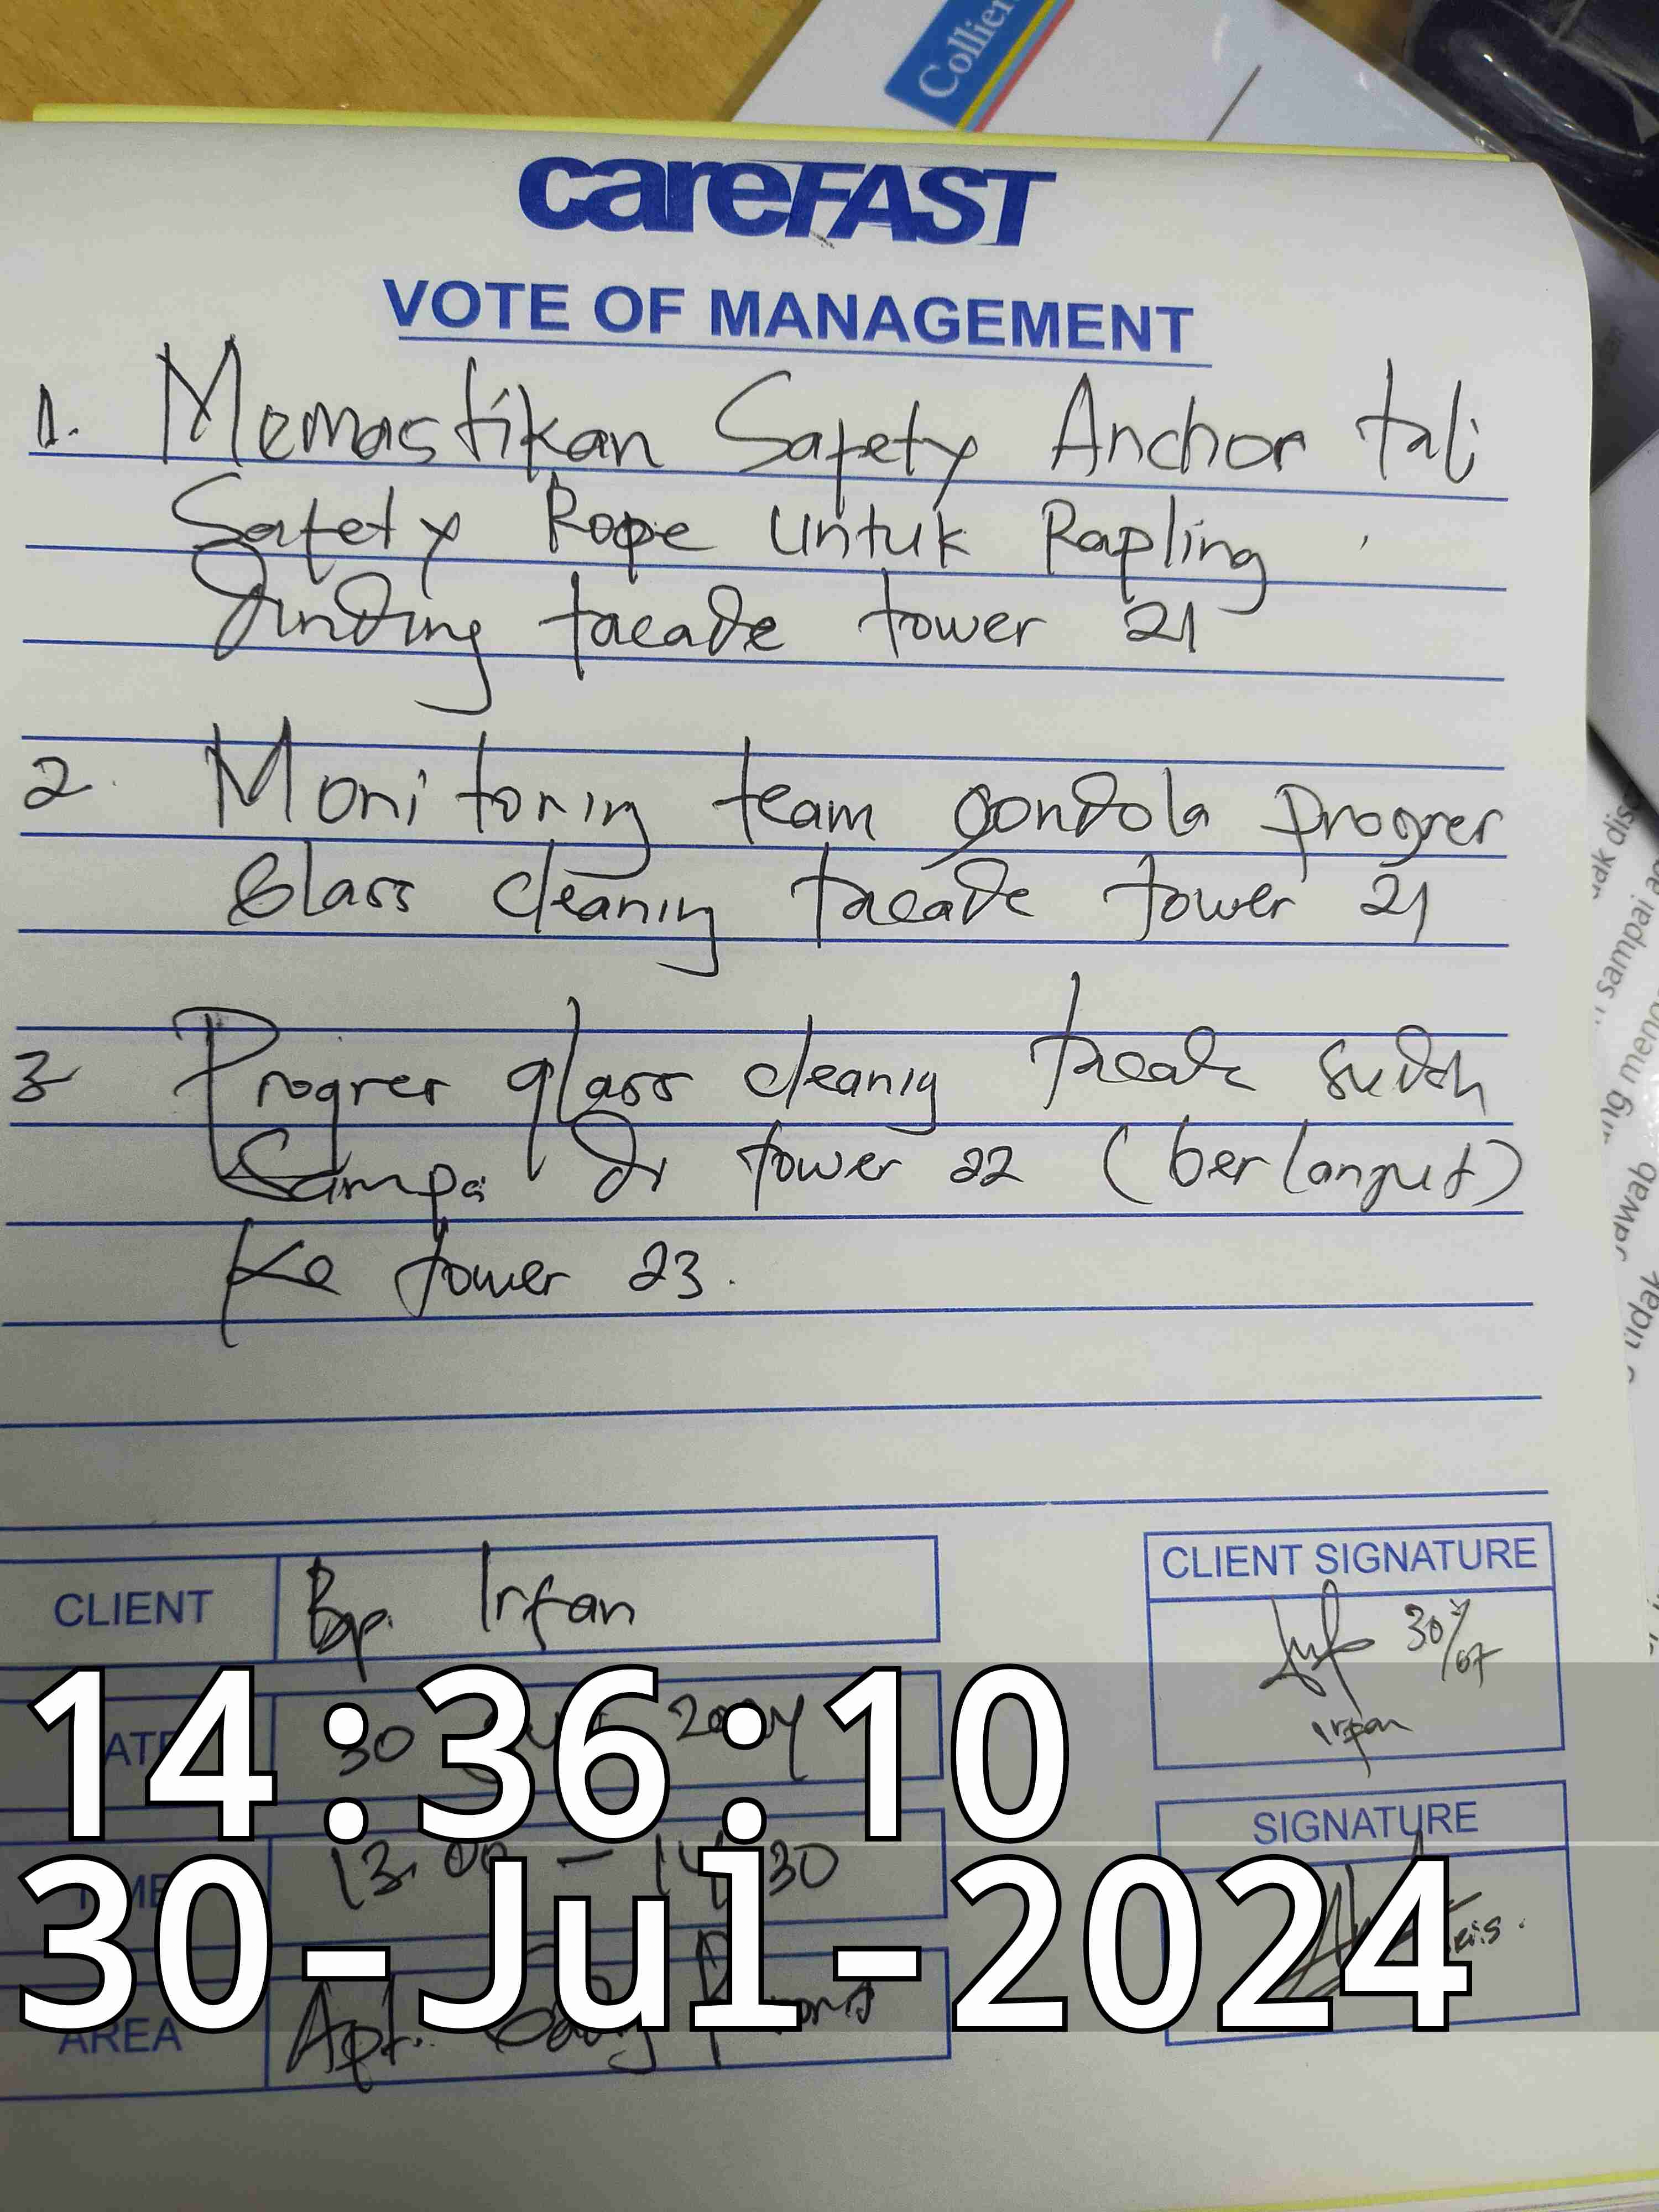 Colliers
careFAST
VOTE OF MANAGEMENT
1. Memastikan Safety Anchor tali
Safety Rope untuk Rapling
dinding facade tower 21
2. Monitoring team gondola progres
Glass cleaning facade tower 21
3 Progres glass cleaning facade sudah
Sampai di tower 22 (berlanjut)
Ke tower 23.
CLIENT Bp. Irfan
CLIENT SIGNATURE
30/07
Irfan
DATE 30 2024
TIME 13.00 - 14.30
AREA Apt.
SIGNATURE
14:36:10
30-Jul-2024
sampai
jawab
tidak